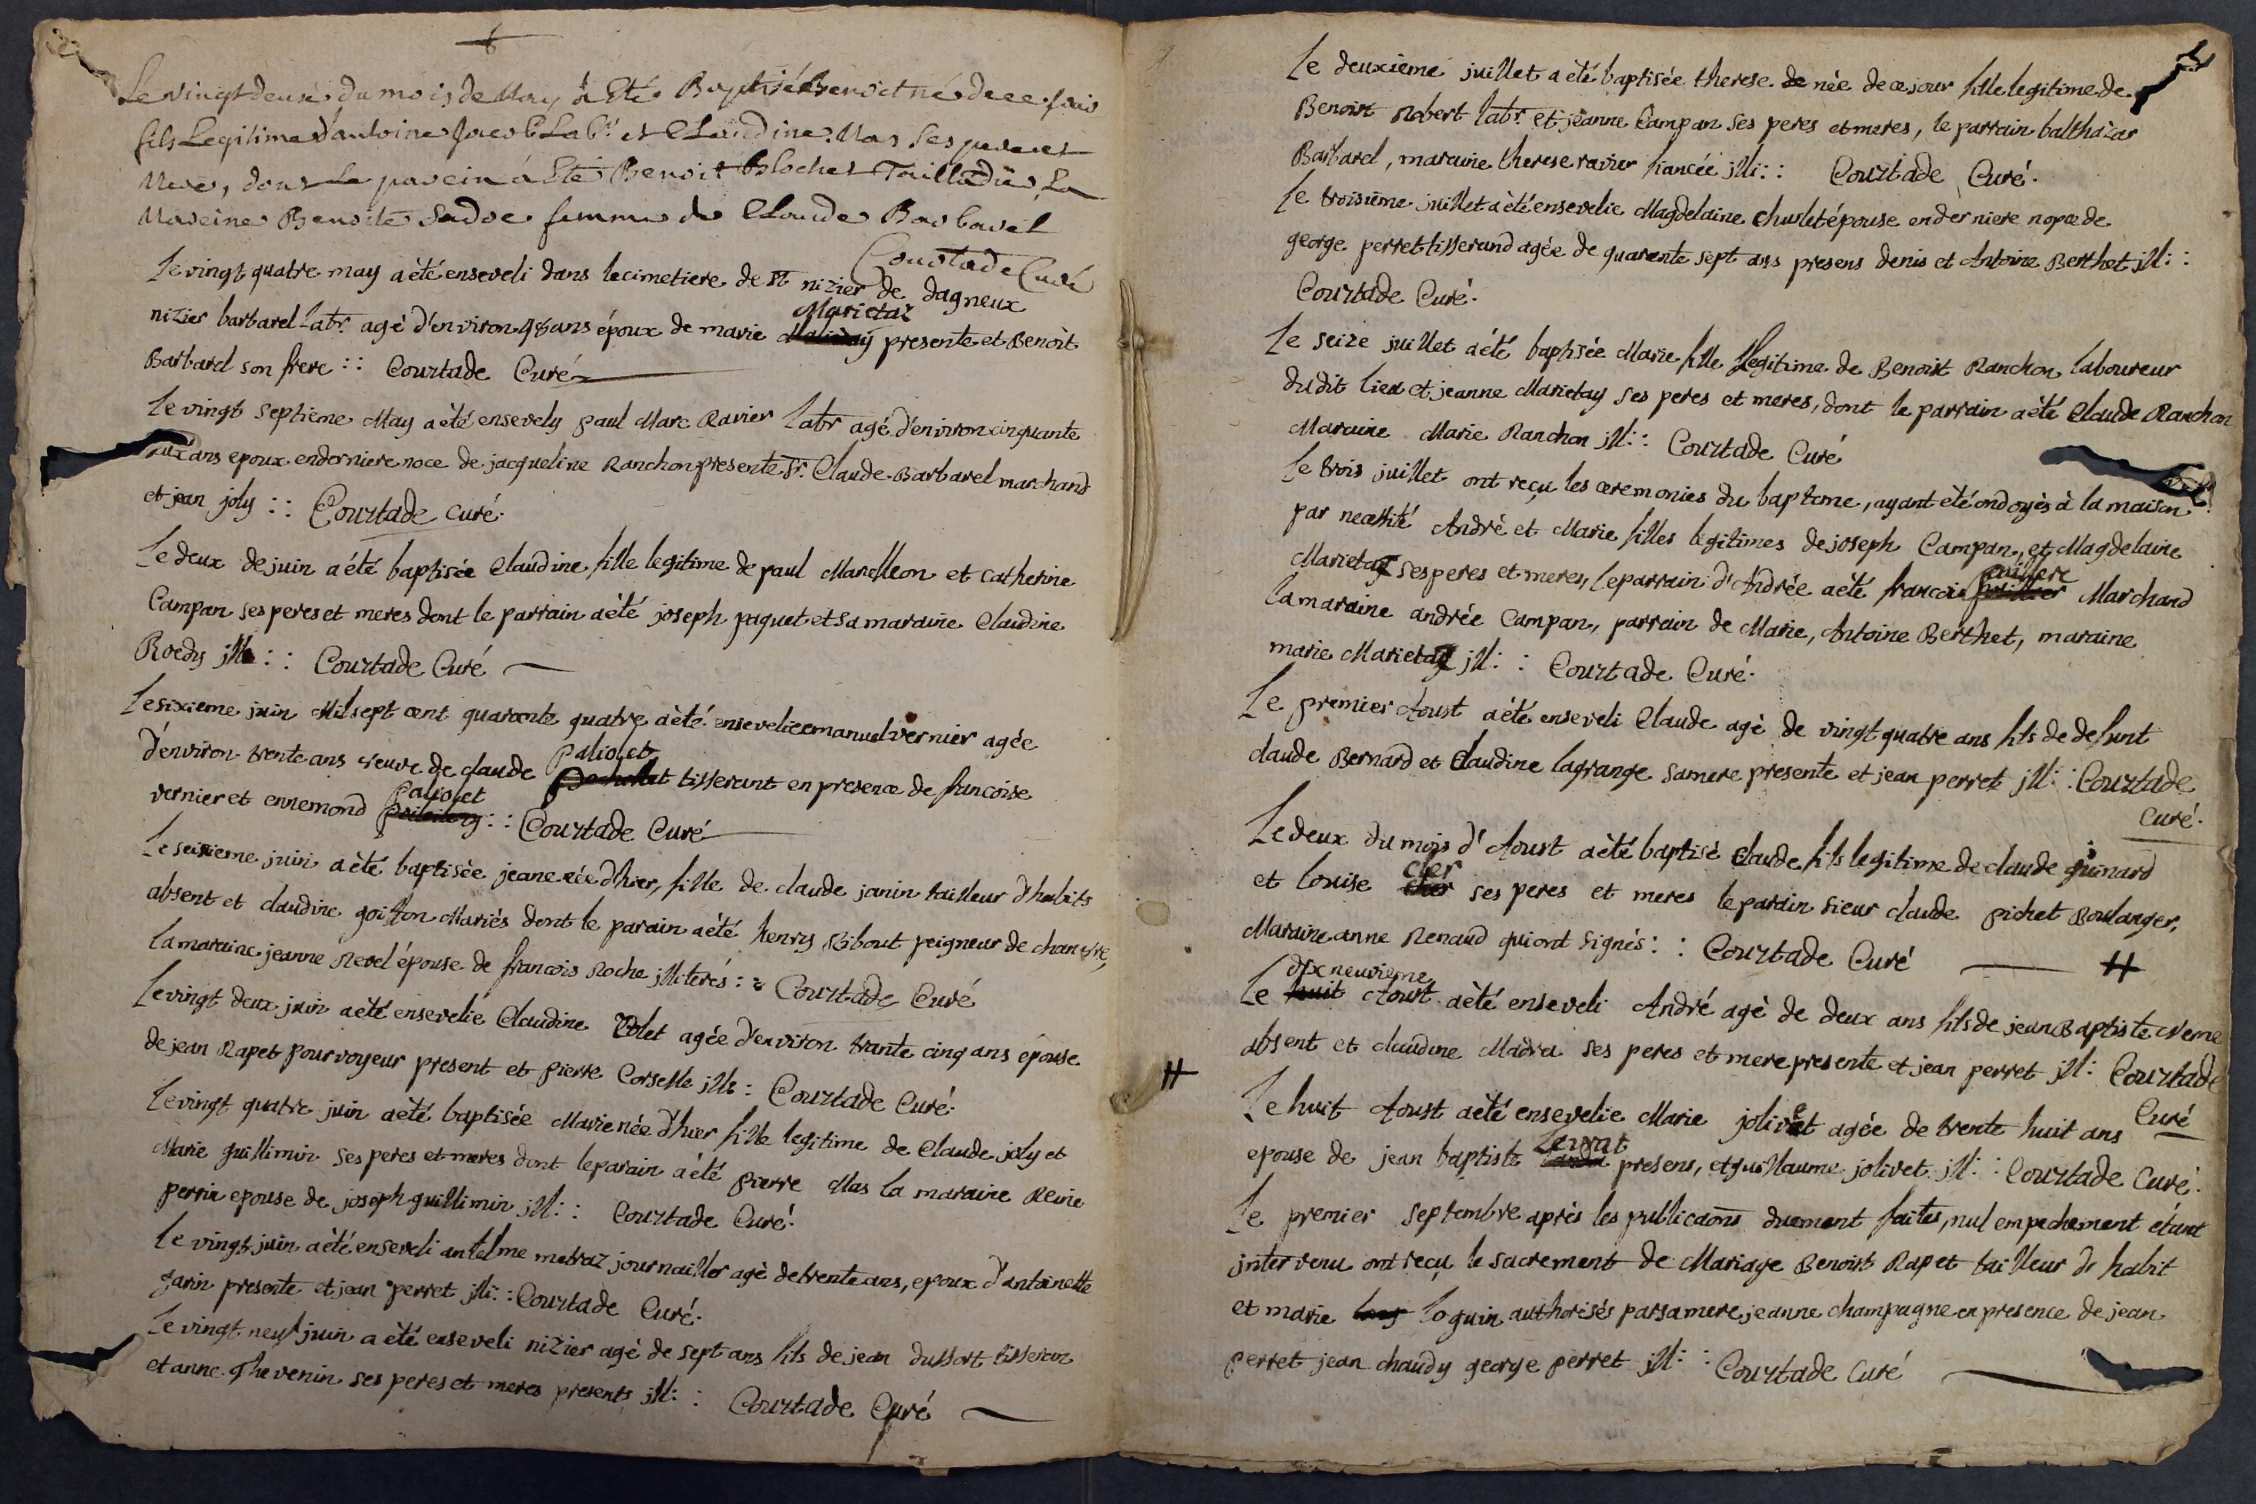 Le vingt deusiè du mois de May à Eté Baptisé Benoict né de ce jour
fils Legitime d'antoine Jacob Labr et Claudine Mas ses pere et
Mere, dont Le parein à Eté Benoit Blochet Tailladié, La
Mareine Benoite Sadoc femme de Claude Barbarel
Courtade Curé
Le vingt quatre may a èté enseveli dans le cimetiere de st nizier de dagneux
nizier barbarel labr agé d'environ 48 ans époux de marie Marietaz presente et Benoit
Barbarel son frere :: Courtade Curé
Le vingt septieme May a èté ensevely paul Marc Ravier labr agé d'environ cinquante
six ans epoux en derniere noce de jacqueline Ranchon presente, Sr. Claude Barbarel marchand
et jean joly :: Courtade curé.
Le deux de juin a été baptisée Claudine fille legitime de paul Marcilleon et Catherine
Campan ses peres et meres dont le parrain a èté joseph paquet et sa maraine Claudine
Roedy jll :: Courtade Curé
Le sixieme juin Mil sept cent quarente quatre a èté ensevelie emanuel vernier agée
d'environ trente ans veuve de claude Paliolet tisserant en presence de francoise
vernier et ennemond Paliolet :: Courtade Curé
Le seisieme juin a èté baptisée jeane née d'hier, fille de claude janin tailleur d'habits
absent et claudine goiffon Mariés dont le parain a èté henry Ribout peigneur de chanvre,
la maraine jeanne Revel épouse de francois Roche jlliterés :: Courtade Curé
Le vingt deux juin a èté ensevelie Claudine Tolet agée d'environ trante cinq ans épouse
de jean Rapet pourvoyeur present et pierre Corselle jlls : Courtade Curé.
Le vingt quatre juin aèté baptisée Marie née d'hier fille legitime de Claude joly et
Marie guillimin ses peres et meres dont le parain a èté pierre Mas la maraine Reine
perrin epouse de joseph guillimin jll :: Courtade Curé.
Le vingt juin aèté enseveli antelme metraz journaillier agè de trente ans, epoux d'antoinette
garin presente et jean perret jlli :: Courtade Curé.
Le vingt neuf juin a été enseveli nizier agé de sept ans fils de jean dussort tisseran
et anne Thevenin ses peres et meres presents jll :: Courtade Curé
Le deuxieme juillet a été baptisée therese de née de ce jour fille legitime de
Benoist Robert labr et jeanne Campan ses peres et meres, le parrain balthazar
Barbarel, maraine therese ravier fiancée jlli :: Courtade Curé.
Le troisième juillet a èté ensevelie Magdelaine Churlet épouse en derniere nopce de
george perret tisserand agée de quarante sept ans presens denis et Antoine Berthet jll ::
Courtade Curé.
Le seize juillet a été baptisée Marie fille legitime de Benoist Ranchon laboureur
dudit lieu et jeanne Marietay ses peres et meres, dont le parrain a èté Claude Ranchon
Maraine Marie Ranchon jll :: Courtade Curé
Le trois juillet ont reçu les ceremonies du baptême, ayant été ondoyés à la maison
par necessité André et Marie filles legitimes de joseph Campan, et Magdelaine
Marietaz ses peres et meres, le parrain d'Andrée a èté francois Cuillere Marchand
la maraine andrée Campan, parrain de Marie, Antoine Berthet, maraine
marie Marietaz jll :: Courtade Curé.
Le premier Aoust a été enseveli Claude agè de vingt quatre ans fils de defunt
claude Bernard et Claudine lagrange sa mere presente et jean perret jll :: Courtade
Curé.
Le deux du mois d'Aoust a èté baptisé Claude fils legitime de claude guinard
et louise cler ses peres et meres le parain sieur claude pichet Boulanger,
Maraine anne Renaud qui ont signés :: Courtade Curé #
Le dix neuvieme Aoust a èté enseveli André agè de deux ans fils de jean Baptiste Neme
absent et claudine Madra ses peres et mere presente et jean perret jll : Courtade
Curé
# Le huit Aoust aèté ensevelie Marie jolivet agée de trente huit ans
epouse de jean baptiste Levrat presens, et guillaume jolivet jll :: Courtade Curé.
Le premier septembre après les publicaôns duement faites, nul empechement étant
intervenu ont reçu le sacrement de Mariage Benoist Rapet tailleur d'habit
et marie loguin authorisés par sa mere jeanne champagne en presence de jean
perret jean chaudy george perret jll :: Courtade Curé